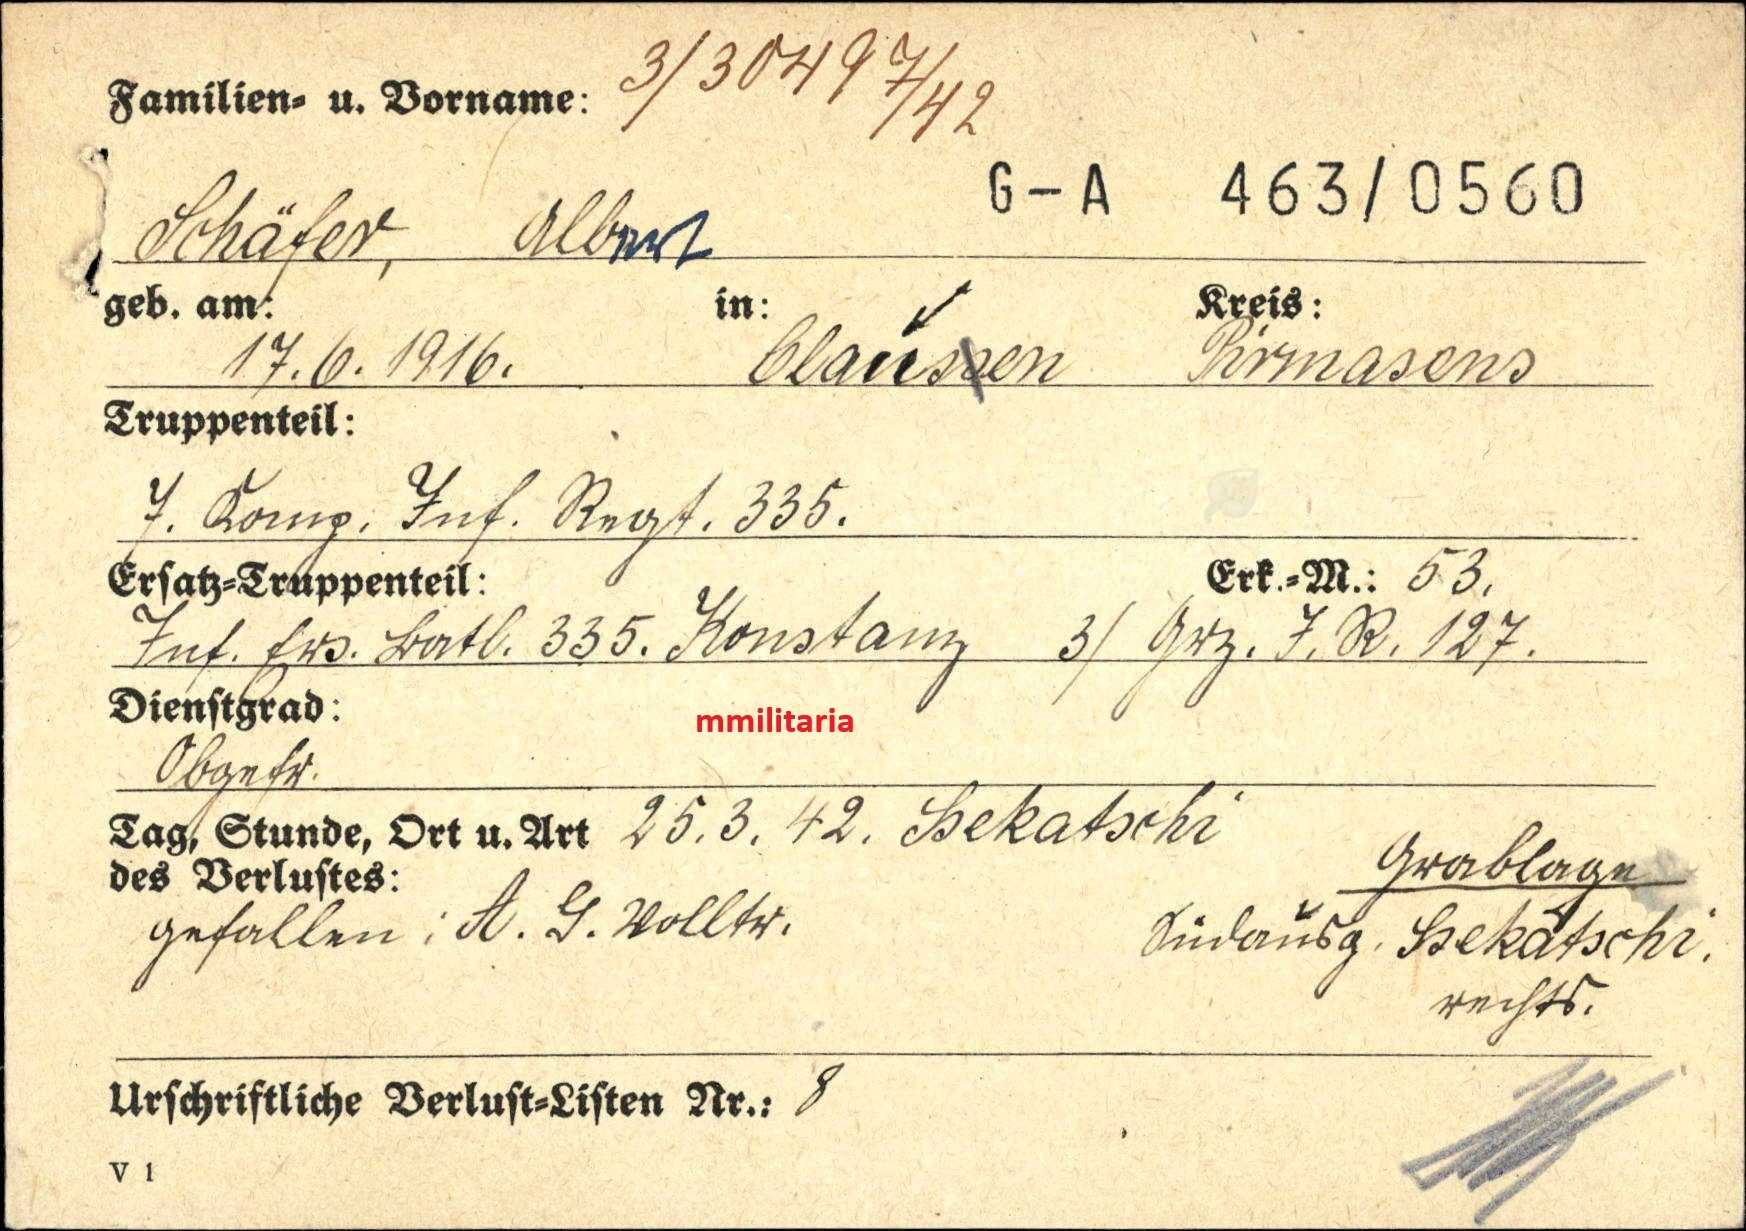 3/30497/42
Familien- u. Vorname:
G-A 463/0560
Schäfer, Albert
geb. am: in: Kreis:
17.6.1916. Clausen Pirmasens
Truppenteil:
7. Komp. Inf. Regt. 335.
Ersatz-Truppenteil: Erk.-M.: 53.
Inf. Ers. Batl. 335. Konstanz 3/ Grz. I. R. 127.
Dienstgrad:
mmilitaria
Obgefr.
Tag, Stunde, Ort u. Art 25.3.42. Ssekatschi
des Verlustes: Grablage
gefallen; A. G. Volltr. Südausg. Ssekatschi.
rechts.
Urschriftliche Verlust-Listen Nr.: 8
V 1